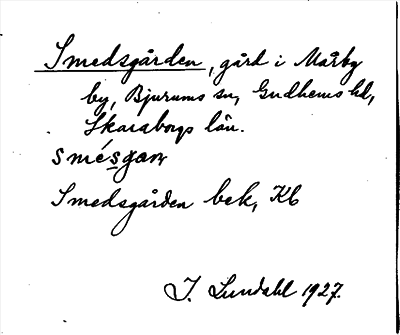 Smedsgården, gård i Marby
by, Bjurums sn, Gudhems hd,
Skaraborgs län.
smésgan
Smedsgården bek, Kb
J. Lundahl 1927.